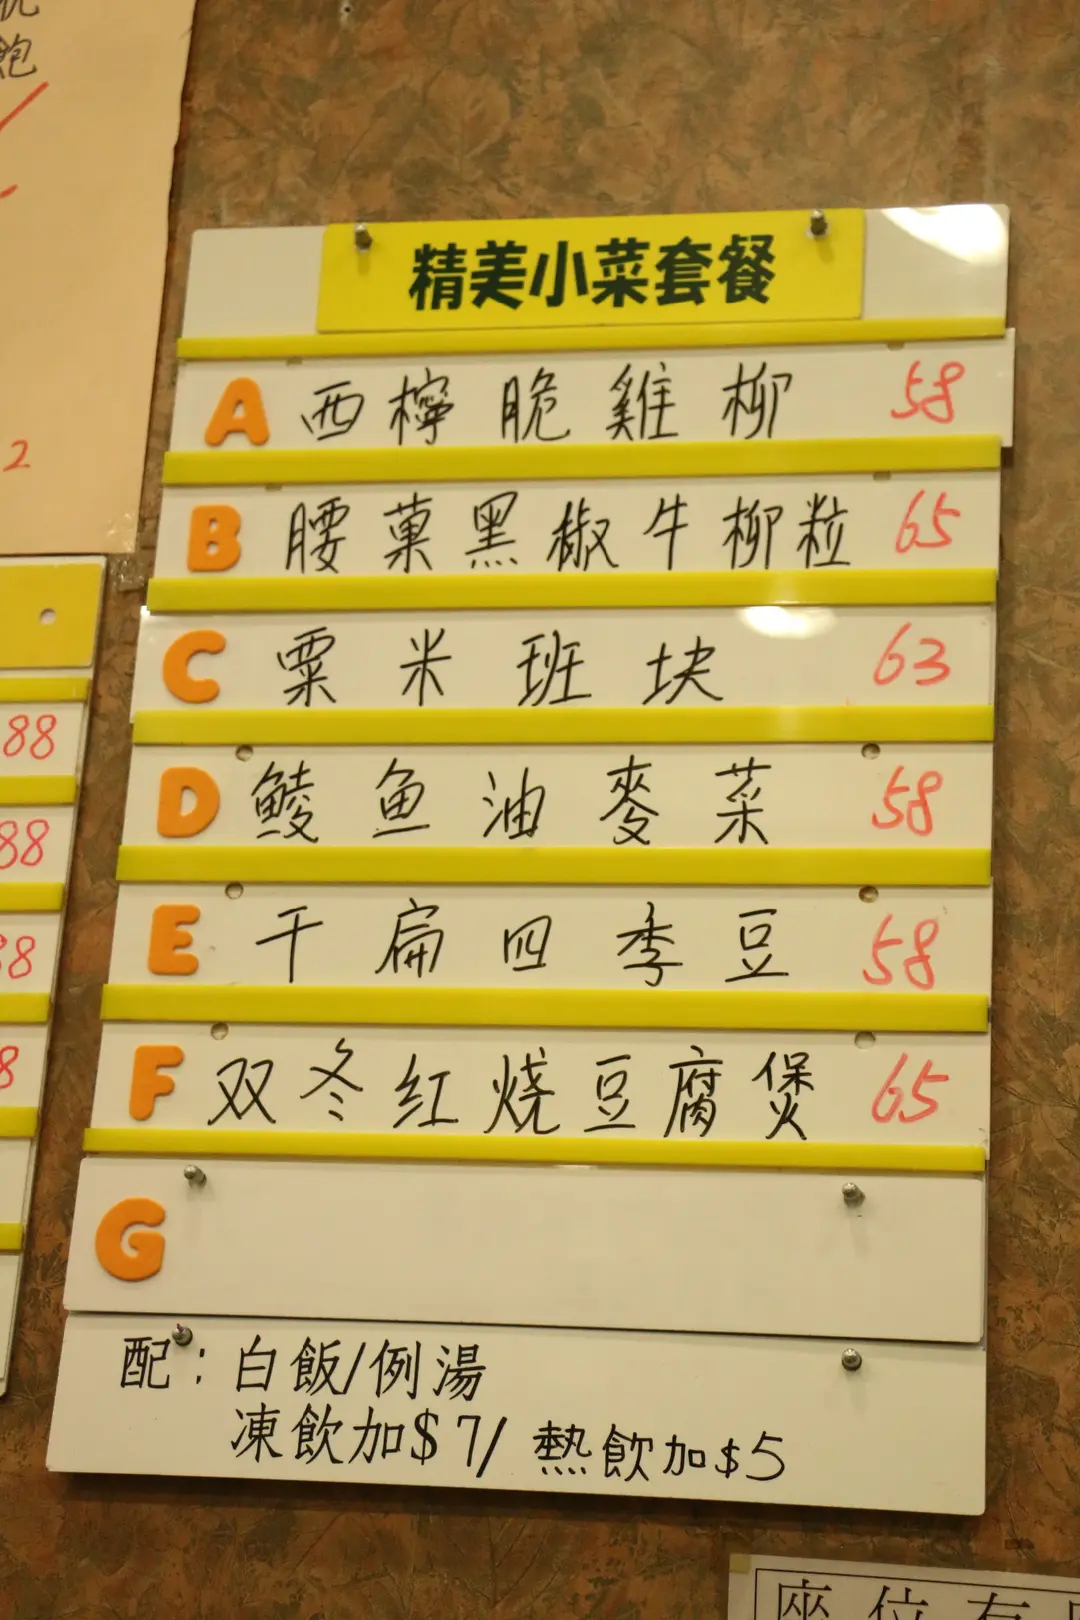 飽
2
88
88
88
8
精美小菜套餐
A 西檸脆雞柳 58
B 腰菓黑椒牛柳粒 65
C 粟米班块 63
D 鯪鱼油麥菜 58
E 干扁四季豆 58
F 双冬红烧豆腐煲 65
G
配：白飯/例湯
凍飲加$7/熱飲加$5
座位有